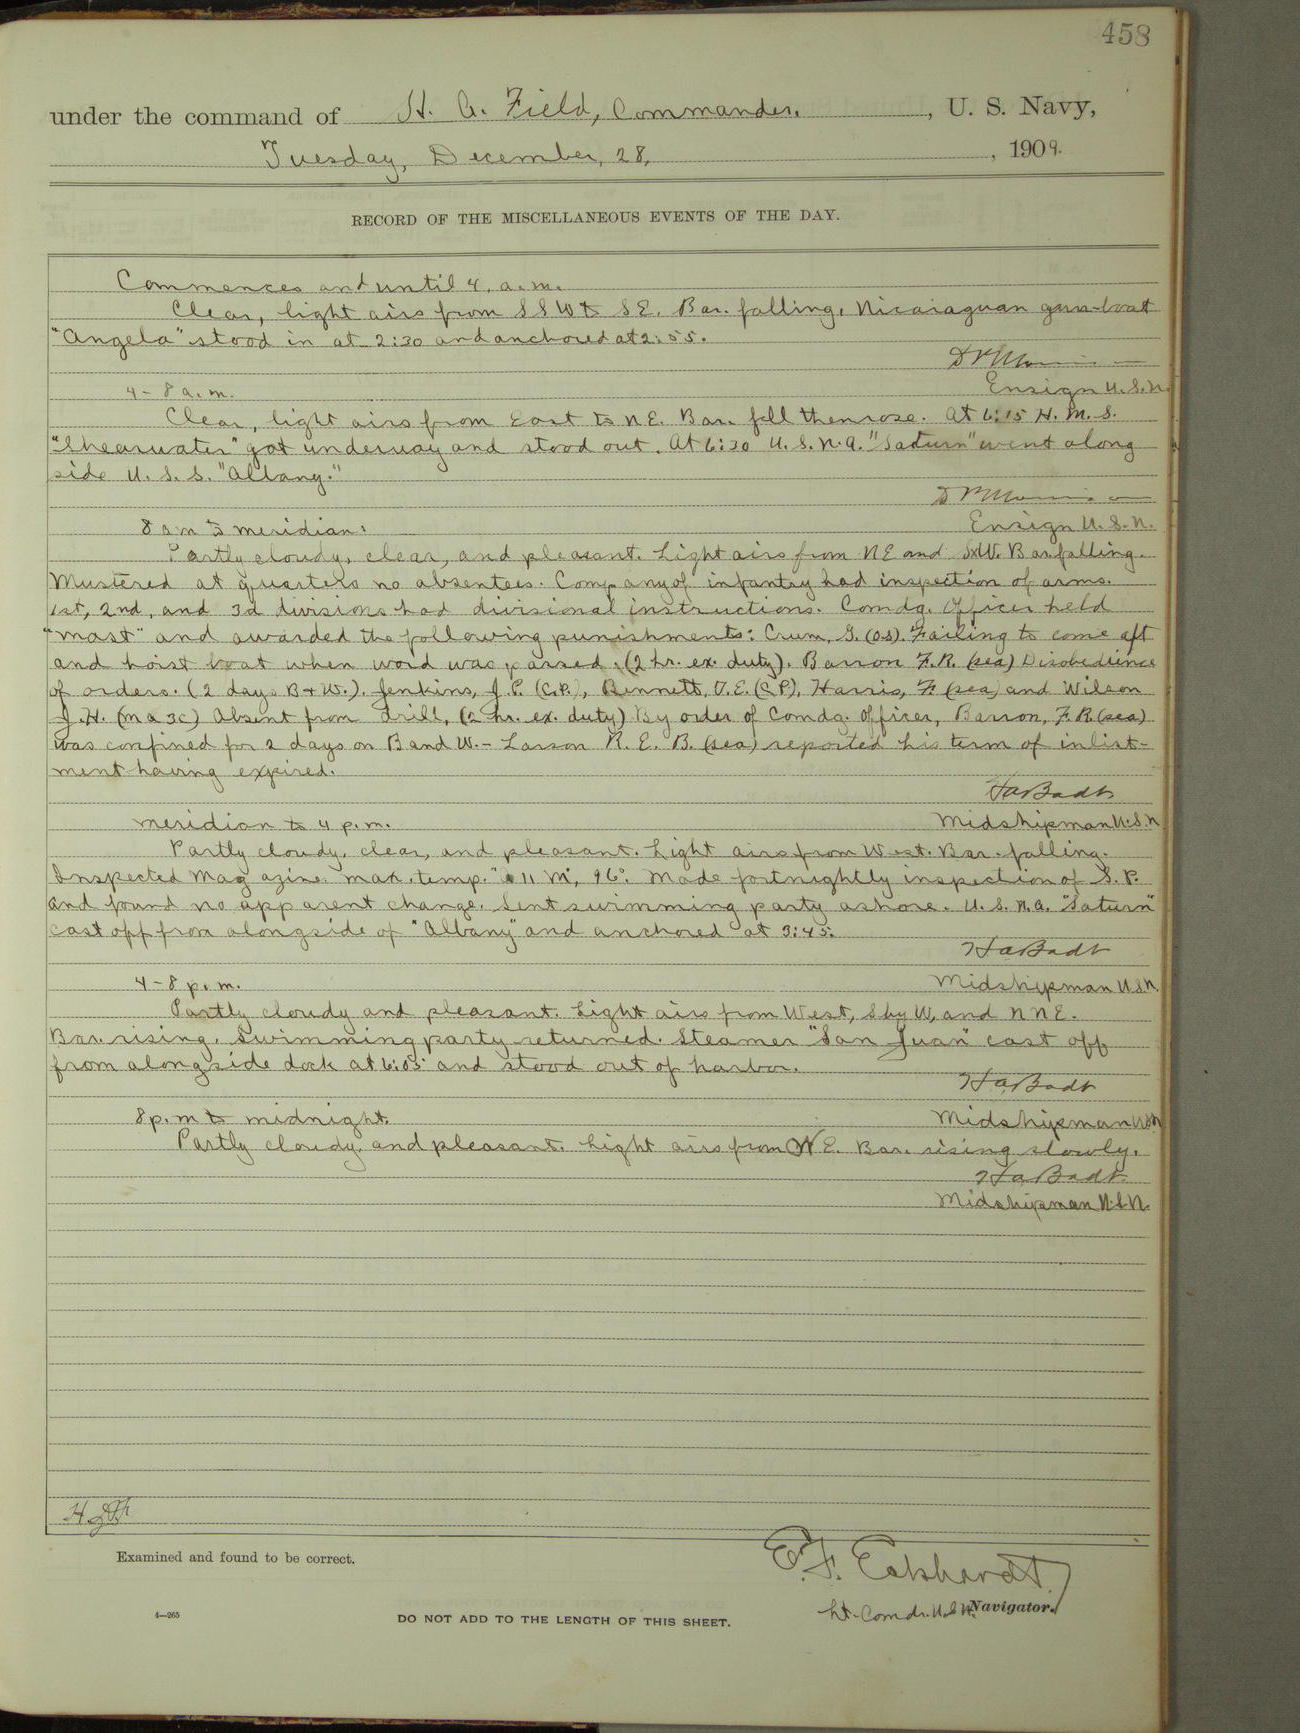 458
under the command of H. A. Field, Commander, , U. S. Navy,
Tuesday, December, 28, , 1909.
RECORD OF THE MISCELLANEOUS EVENTS OF THE DAY.
Commences and until 4. a.m.
Clear, light airs from SSW to SE. Bar. falling. Nicaraguan gun-boat
"Angela" stood in at 2:30 and anchored at 2:55.
4-8 a.m.
Ensign U.S.N.
Clear, light airs from East to NE. Bar. fell then rose. At 6:15 H. M. S.
"Shearwater" got underway and stood out. At 6:30 U.S.N.A. "Saturn" went along
side U. S. S. "Albany."
8 am to meridian:
Ensign U.S.N.
Partly cloudy, clear, and pleasant. Light airs from NE and SxW. Bar falling.
Mustered at quarters no absentees. Company of infantry had inspection of arms.
1st, 2nd, and 3d divisions had divisional instructions. Comdg. Officer held
"mast" and awarded the following punishments: Crum, G. (O.S). Failing to come aft
and hoist boat when word was passed, (2 hr. ex. duty). Barron F.R. (sea) Disobedience
of orders. (2 days B+W.). Jenkins, J.P. (C.P.), Bennett, V.E. (C.P), Harris, F. (sea) and Wilson
J.H. (M a 3c) Absent from drill, (2 hr. ex. duty) By order of Comdg. Officer, Barron, F.R. (sea)
was confined for 2 days on B and W. - Larson R. E. B. (sea) reported his term of inlist-
ment having expired.
HaBadt
meridian to 4 p.m.
Midshipman U.S.N
Partly cloudy, clear, and pleasant. Light airs from West. Bar. falling.
Inspected Magazine max. temp. "11 M", 96°. Made fortnightly inspection of S.P.
and found no apparent change. Sent swimming party ashore. U.S.N.A. "Saturn"
cast off from alongside of "Albany" and anchored at 3:45.
HaBadt
4-8 p.m.
Midshipman U.S.N.
Partly cloudy and pleasant. Light airs from West, S by W, and NNE.
Bar. rising. Swimming party returned. Steamer "San Juan" cast off
from alongside dock at 6:05 and stood out of harbor.
HaBadt
8 p.m to midnight.
Midshipman USN
Partly cloudy, and pleasant. Light airs from NE. Bar. rising slowly.
HaBadt
Midshipman U.S.N.
Examined and found to be correct.
E. F. Eckhardt
Lt-Comdr. U.S.N. Navigator.
4—265
DO NOT ADD TO THE LENGTH OF THIS SHEET.